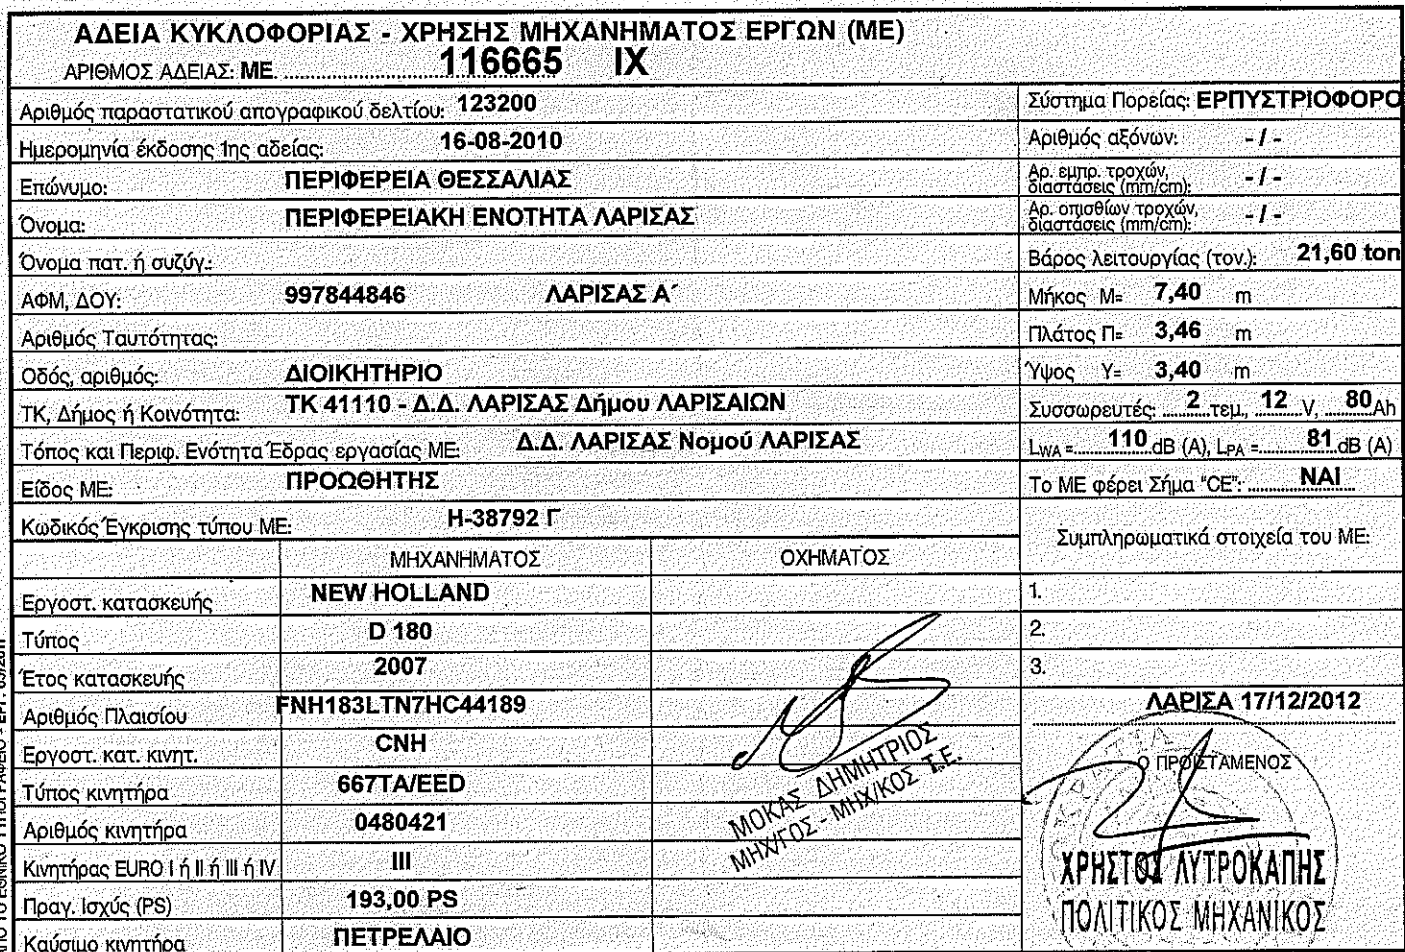 ΑΔΕΙΑ ΚΥΚΛΟΦΟΡΙΑΣ - ΧΡΗΣΗΣ ΜΗΧΑΝΗΜΑΤΟΣ ΕΡΓΩΝ (ΜΕ)
ΑΡΙΘΜΟΣ ΑΔΕΙΑΣ: ΜΕ. 116665 ΙΧ
Αριθμός παραστατικού απογραφικού δελτίου: 123200
Ημερομηνία έκδοσης 1ης αδείας: 16-08-2010
Επώνυμο: ΠΕΡΙΦΕΡΕΙΑ ΘΕΣΣΑΛΙΑΣ
Όνομα: ΠΕΡΙΦΕΡΕΙΑΚΗ ΕΝΟΤΗΤΑ ΛΑΡΙΣΑΣ
Όνομα πατ. ή συζύγ.:
ΑΦΜ, ΔΟΥ: 997844846 ΛΑΡΙΣΑΣ Α΄
Αριθμός Ταυτότητας:
Οδός, αριθμός: ΔΙΟΙΚΗΤΗΡΙΟ
ΤΚ, Δήμος ή Κοινότητα: ΤΚ 41110 - Δ.Δ. ΛΑΡΙΣΑΣ Δήμου ΛΑΡΙΣΑΙΩΝ
Τόπος και Περιφ. Ενότητα Έδρας εργασίας ΜΕ: Δ.Δ. ΛΑΡΙΣΑΣ Νομού ΛΑΡΙΣΑΣ
Είδος ΜΕ: ΠΡΟΩΘΗΤΗΣ
Κωδικός Έγκρισης τύπου ΜΕ: Η-38792 Γ
ΜΗΧΑΝΗΜΑΤΟΣ ΟΧΗΜΑΤΟΣ
Εργοστ. κατασκευής NEW HOLLAND
Τύπος D 180
Έτος κατασκευής 2007
Αριθμός Πλαισίου FNH183LTN7HC44189
Εργοστ. κατ. κινητ. CNH
Τύπος κινητήρα 667TA/EED
Αριθμός κινητήρα 0480421
Κινητήρας EURO I ή II ή III ή IV III
Πραγ. Ισχύς (PS) 193,00 PS
Καύσιμο κινητήρα ΠΕΤΡΕΛΑΙΟ
ΜΟΚΑΣ ΔΗΜΗΤΡΙΟΣ
ΜΗΧ/ΓΟΣ - ΜΗΧ/ΚΟΣ Τ.Ε.
Σύστημα Πορείας: ΕΡΠΥΣΤΡΙΟΦΟΡΟ
Αριθμός αξόνων: - / -
Αρ. εμπρ. τροχών,
διαστάσεις (mm/cm): - / -
Αρ. οπισθίων τροχών,
διαστάσεις (mm/cm): - / -
Βάρος λειτουργίας (τον.): 21,60 ton
Μήκος Μ= 7,40 m
Πλάτος Π= 3,46 m
Ύψος Υ= 3,40 m
Συσσωρευτές: 2 τεμ., 12 V, 80 Ah
LWA = 110 dB (A), LPA = 81 dB (A)
Το ΜΕ φέρει Σήμα "CE": ΝΑΙ
Συμπληρωματικά στοιχεία του ΜΕ:
1.
2.
3.
ΛΑΡΙΣΑ 17/12/2012
Ο ΠΡΟΪΣΤΑΜΕΝΟΣ
ΧΡΗΣΤΟΣ ΛΥΤΡΟΚΑΠΗΣ
ΠΟΛΙΤΙΚΟΣ ΜΗΧΑΝΙΚΟΣ